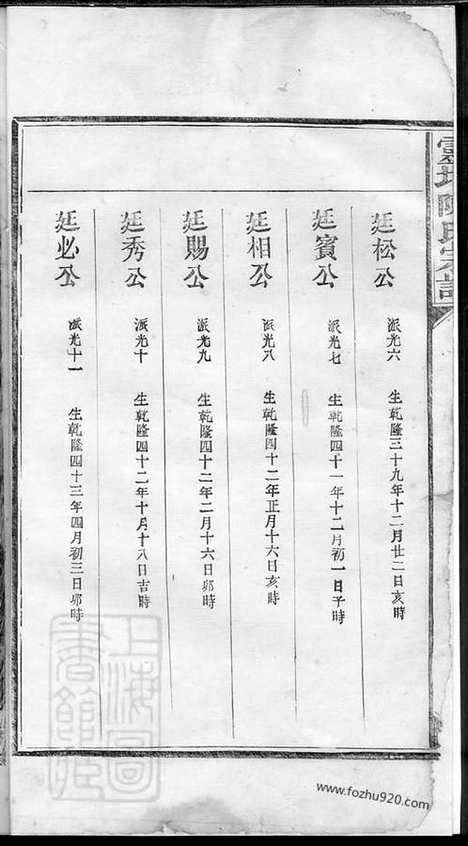 陳氏宗譜
廷松公 派光六 生乾隆三十九年十二月廿二日亥時
廷賓公 派光七 生乾隆四十一年十二月初一日子時
廷相公 派光八 生乾隆四十二年正月十六日亥時
廷賜公 派光九 生乾隆四十二年二月十六日卯時
廷秀公 派光十 生乾隆四十二年十月十八日吉時
廷必公 派光十一 生乾隆四十三年四月初三日卯時
上海圖書館藏
www.fozhu920.com